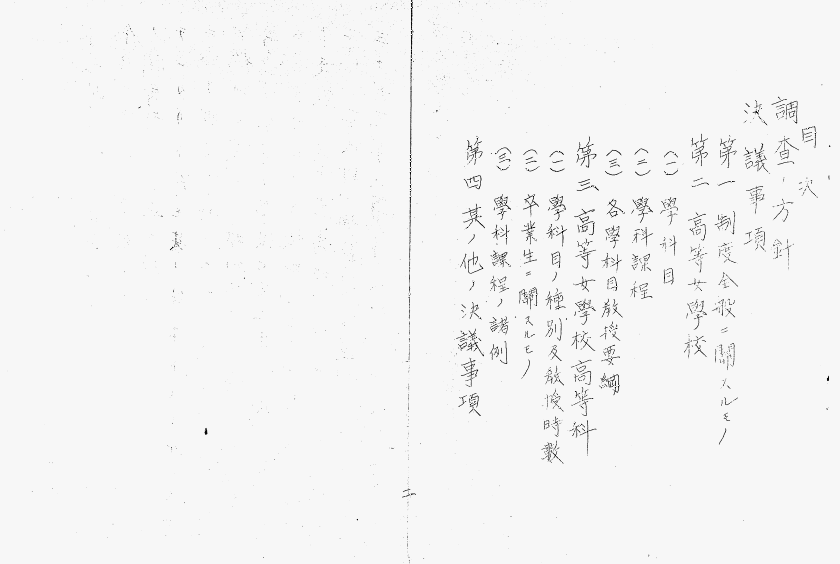 目次
調査ノ方針
決議事項
第一 制度全般ニ關スルモノ
第二 高等女學校
(一) 學科目
(二) 學科課程
(三) 各學科目敎授要綱
第三 高等女學校高等科
(一) 學科目ノ種別及敎授時數
(二) 卒業生ニ關スルモノ
(三) 學科課程ノ諸例
第四 其ノ他ノ決議事項
二